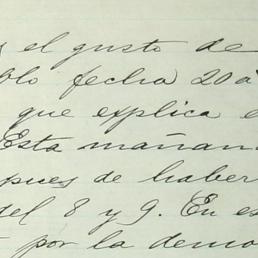 el gusto de
blo fecha 20 á
que explica e
Esta mañan
pues de haber
del 8 y 9. En es
por la demo